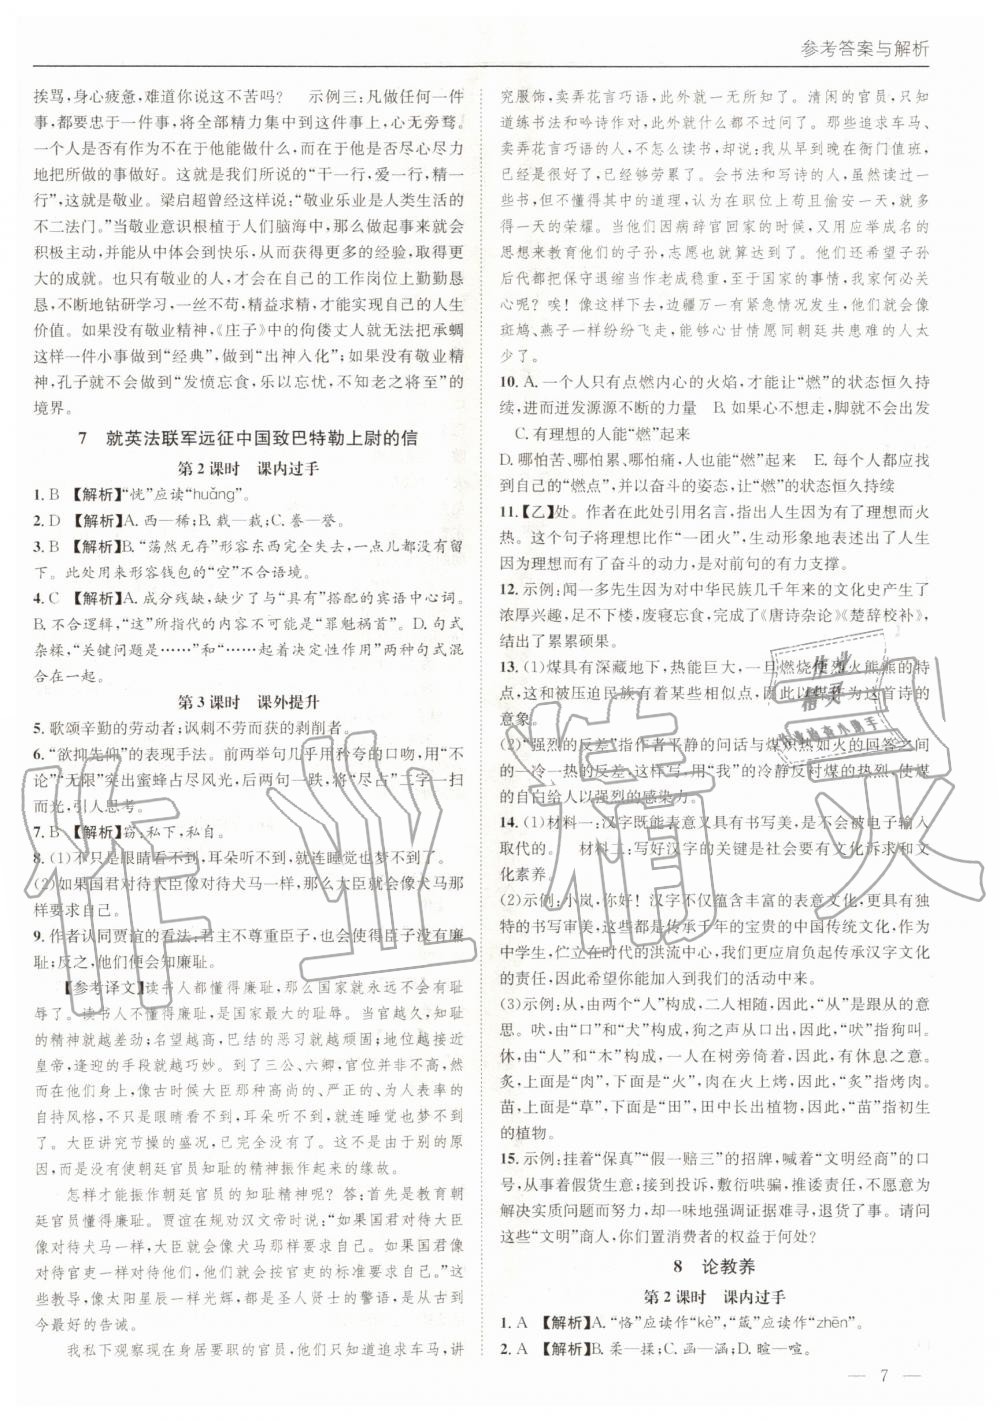 参考答案与解析
挨骂,身心疲惫,难道你说这不苦吗?　示例三:凡做任何一件
事,都要忠于一件事,将全部精力集中到这件事上,心无旁骛。
一个人是否有作为不在于他能做什么,而在于他是否尽心尽力
地把所做的事做好。这就是我们所说的“干一行,爱一行,精一
行”,这就是敬业。梁启超曾经这样说:“敬业乐业是人类生活的
不二法门。”当敬业意识根植于人们脑海中,那么做起事来就会
积极主动,并能从中体会到快乐,从而获得更多的经验,取得更
大的成就。也只有敬业的人,才会在自己的工作岗位上勤勤恳
恳,不断地钻研学习,一丝不苟,精益求精,才能实现自己的人生
价值。如果没有敬业精神,《庄子》中的佝偻丈人就无法把承蜩
这样一件小事做到“经典”,做到“出神入化”;如果没有敬业精
神,孔子就不可能达到“发愤忘食,乐以忘忧,不知老之将至”的
境界。
7　就英法联军远征中国致巴特勒上尉的信
第 2 课时　课内过手
1. B　【解析】“恍”应读“huǎng”。
2. D　【解析】A. 西—稀;B. 载—裁;C. 眷—誉。
3. B　【解析】B.“荡然无存”形容东西完全失去,一点儿都没有留
下。此处用来形容钱包的“空”不合语境。
4. C　【解析】A. 成分残缺,缺少了与“具有”搭配的宾语中心词。
B. 不合逻辑,“这”所指代的内容不可能是“罪魁祸首”。D. 句式
杂糅,“关键问题是……”和“……起着决定性作用”两种句式混
合在一起。
第 3 课时　课外提升
5. 歌颂辛勤的劳动者;讽刺不劳而获的剥削者。
6. “欲抑先仰”的表现手法。前两举句几乎用矜夸的口吻,用“不
论”“无限”突出蜜蜂占尽风光,后两句一跌,将“尽占”二字一扫
而光,引人思考。
7. B　【解析】窃:私下,私自。
8. (1)不只是眼睛看不到,耳朵听不到,就连睡觉也梦不到了。
(2)如果国君对待大臣像对待犬马一样,那么大臣就会像犬马那
样要求自己。
9. 作者认同贾谊的看法:君主不尊重臣子,也会使得臣子们没有廉
耻;反之,他们便会知廉耻。
【参考译文】读书人都懂得廉耻,那么国家就永远不会有耻
辱了。读书人不懂得廉耻,是国家最大的耻辱。当官越久,知耻
的精神就越差劲;名望越高,巴结的恶习就越顽固;地位越接近
皇帝,逢迎的手段就越巧妙。到了三公、六卿,官位并非不高,然
而在他们身上,像古时候大臣那种高尚的、严正的、为人表率的
自持风格,不只是眼睛看不到,耳朵听不到,就连睡觉也梦不到
了。大臣讲究节操的盛况,已完全没有了。这不是由于别的原
因,而是没有使朝廷官员知耻的精神振作起来的缘故。
怎样才能振作朝廷官员的知耻精神呢?答:首先是教育朝
廷官员懂得廉耻。贾谊在规劝汉文帝时讲:“如果国君对待大臣
像对待犬马一样,大臣就会像犬马那样要求自己。如果像对
待官吏一样对待他们,他们也会像官吏那样要求自己。”这些教导,像太阳星辰一样光辉,都是圣人贤士的警语,是从古到
今最好的告诫。
我私下观察现在身居要职的官员,他们只知道追求车马,讲
究服饰,卖弄花言巧语,此外就一无所知了。清闲的官员,只知
道练书法和吟诗作对,此外就什么都不过问了。那些追求车马、
卖弄花言巧语的人,不怎么读书,却说:我从早到晚在衙门值班,
已经是很好了,已经是够劳累了。会书法和写诗的人,读过
一些书,但不懂得其中的含义,认为在职位上苟且偷安一天,就多
得一天的荣耀。当他们因病辞官回家的时候,又用应举成名的
思想来教育他们的子孙,志愿也就算达到了。他们还希望子孙
后代都把保守退缩当作老成稳重,至于国家的事情,我家何必关
心呢?唉!像这样下去,边疆万一有紧急情况发生,他们就会像
斑鸠、燕子一样纷纷飞走,能够心甘情愿同朝廷共患难的人太
少了。
10. A. 一个人只有点燃内心的火焰,才能让“燃”的状态恒久持
续,进而迸发源源不断的力量　B. 如果心不想走,脚就不会出发
C. 有理想的人能“燃”起来
D. 哪怕苦、哪怕累,人也能“燃”起来　E. 每个人都应找到
自己的“燃点”,并以奋斗的姿态,让“燃”的状态恒久持续
11.【乙】处。作者在此处引用名言,指出人生因为有了理想而火
热。这个句子将理想比作“一团火”,生动形象地表述出了人生
因为理想而有了奋斗的动力,是对前句的有力支撑。
12. 示例:闻一多先生因为对中华民族几千年来的文化史产生了
浓厚兴趣,足不下楼,废寝忘食,完成了《唐诗杂论》《楚辞校补》,
结出了累累硕果。
13. (1)煤具有深藏地下,热能巨大,一旦燃烧便烈火熊熊的特点,
这和被压迫民族有着某些相似点,因此以煤作为这首诗的
意象。
(2)“强烈的反差”指作者平静的问话与煤炽热如火的回答之间
的一冷一热的反差;这样写,用“我”的冷静反衬煤的热烈,使煤
的自白给人以强烈的感染力。
14. (1)材料一:汉字既能表意又具有书写美,是不会被电子输入
取代的。　材料二:写好汉字的关键是社会要有文化诉求和文
化素养。
(2)示例:小岚,你好!汉字不仅蕴含丰富的表意文化,更具有独
特的书写审美,这些都是传承千年的宝贵的中国传统文化,作为
中学生,伫立在时代的洪流中心,我们更应肩负起传承汉字文化
的责任,因此希望你能加入到我们的活动中来。
(3)示例:从,由两个“人”构成,二人相随,因此,“从”是跟从的意
思。吠,由“口”和“犬”构成,狗之声从口出,因此,“吠”指狗叫。
休,由“人”和“木”构成,一人在树旁倚着,因此,“休”指休息。
炙,上面是“肉”,下面是“火”,肉在火上烤,因此,“炙”指烤肉。
苗,上面是“草”,下面是“田”,田中长出植物,因此,“苗”指初生
的植物。
15. 示例:挂着“保真”“假一赔三”的招牌,喊着“文明经商”的口
号,行销着假货劣货;接到投诉,敷衍哄骗,推诿责任,不愿意为
解决实质问题而努力,却一味地强调证据难寻,退货了事。请问
这些“文明”商人,你们置消费者的权益于何处?
8　论教养
第 2 课时　课内过手
1. A　【解析】A.“恪”应读作“kè”,“箴”应读作“zhēn”。
2. A　【解析】B. 柔—揉;C. 函—涵;D. 暄—喧。
— 7 —
作业精灵